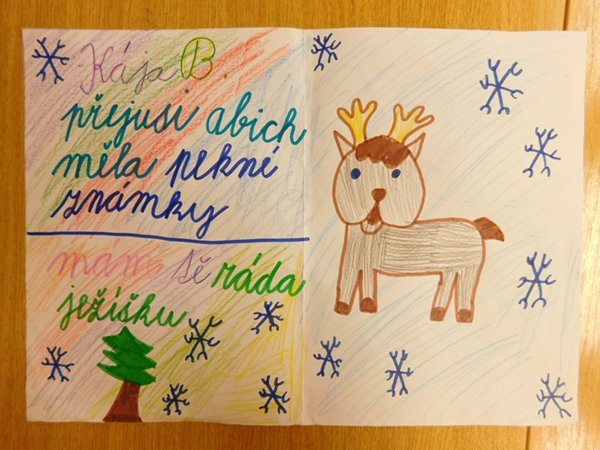 Kája B.
přejusi abich
měla pekné
známky
mám tě ráda
ježíšku